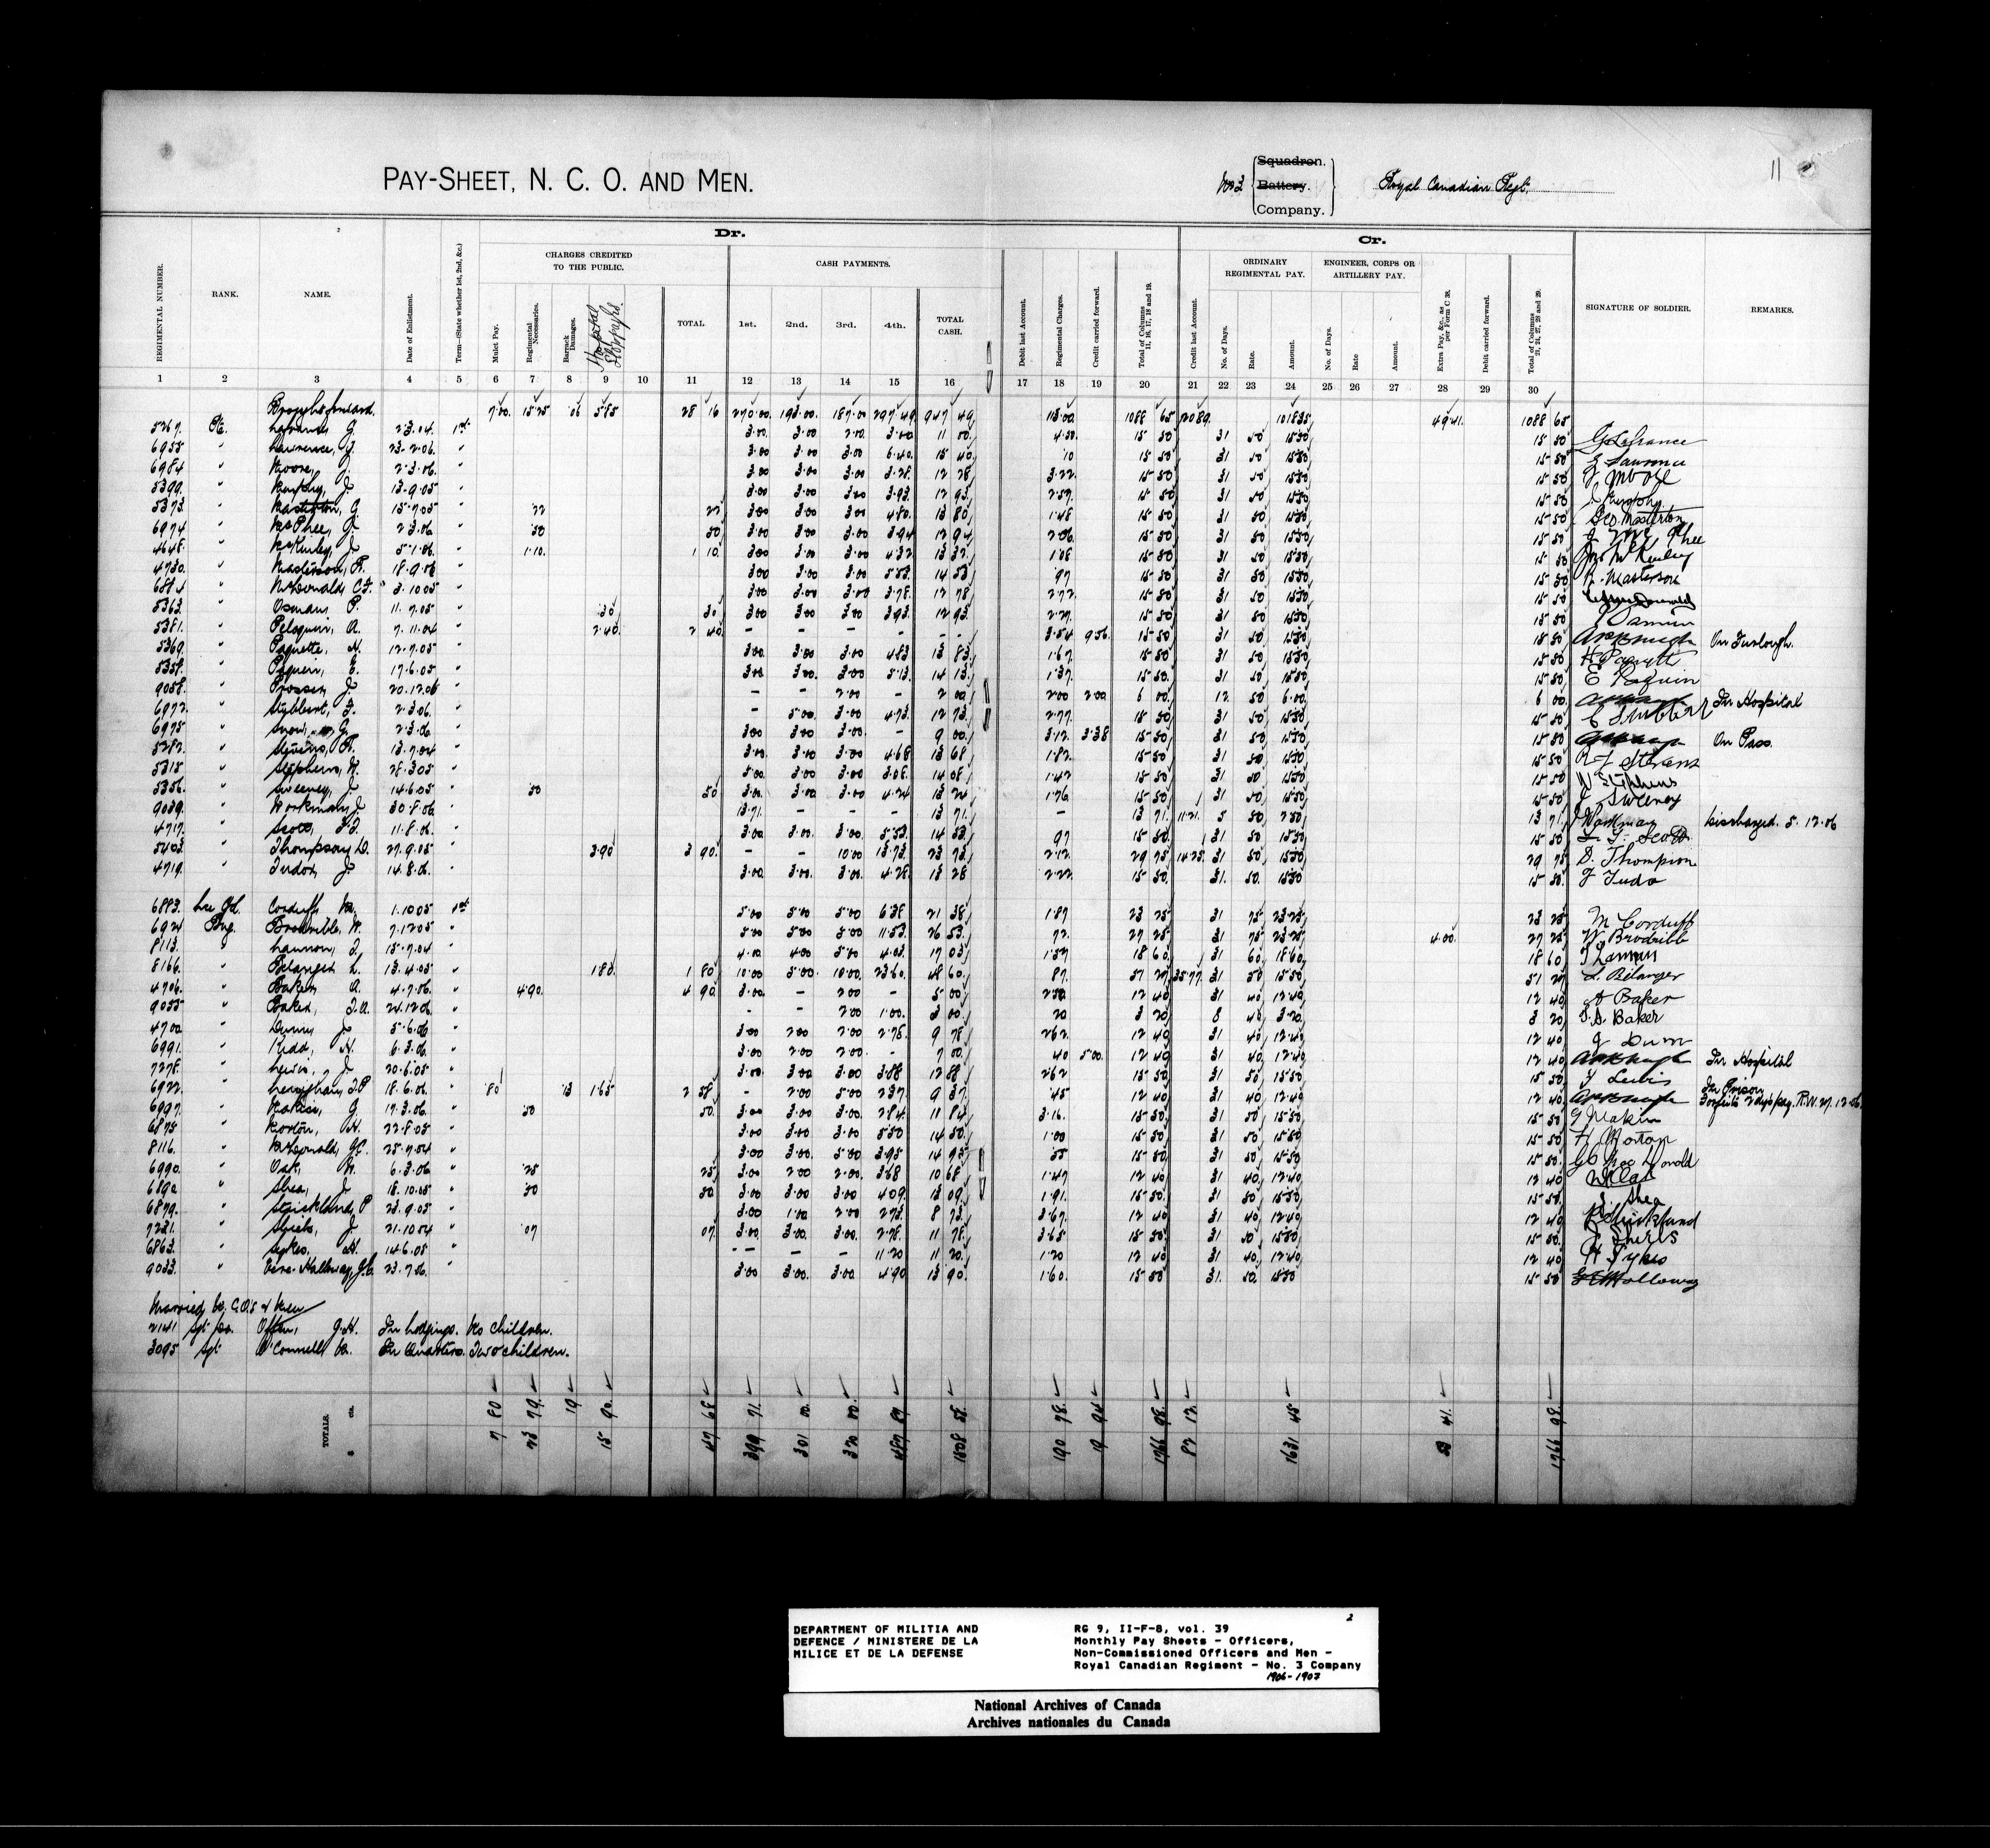 11
PAY-SHEET, N. C. O. AND MEN.
No 3
Squadron.
Battery.
Company.
Royal Canadian Regt.
Dr.
Cr.
CHARGES CREDITED TO THE PUBLIC.
CASH PAYMENTS.
ORDINARY REGIMENTAL PAY.
ENGINEER, CORPS OR ARTILLERY PAY.
REGIMENTAL NUMBER. RANK. NAME. Date of Enlistment. Term—(State whether 1st, 2nd, &c.) Mulct Pay. Regimental Necessaries. Barrack Damages. Hospital Stoppages. TOTAL 1st. 2nd. 3rd. 4th. TOTAL CASH. Debit last Account. Regimental Charges. Credit carried forward. Total of Columns 11, 16, 17, 18 and 19. Credit last Account. No. of Days. Rate. Amount. No. of Days. Rate Amount. Extra Pay, &c., as per Form C 38. Debit carried forward. Total of Columns 21, 24, 27, 28 and 29. SIGNATURE OF SOLDIER. REMARKS.
1 2 3 4 5 6 7 8 9 10 11 12 13 14 15 16 17 18 19 20 21 22 23 24 25 26 27 28 29 30
Brought forward. 7.00 15.75 06 5.85 28 16 270.00 195.00 187.00 297.49 947 49 113.00 1088 65 20.89 1018.35 49.41 1088 65
5267 Pte. G. 2.3.04 1st 3.00 3.00 2.00 3.00 11 00 4.50 15 50 31 50 15.50 15 50 G Lafrance
6955 " Lawrence, J. 23.2.06 " 3.00 3.00 3.00 6.40 15 40 10 15 50 31 50 15.50 15 50 Lawrence
6984 " Moore, J. 2.3.06 " 3.00 3.00 3.00 3.28 12 28 3.22 15 50 31 50 15.50 15 50 J Moore
5399 " Murphy, J. 13.9.05 " 3.00 3.00 3.00 3.93 12 93 2.57 15 50 31 50 15.50 15 50 J Murphy
5373 " Masterton, G 15.7.05 " 22 22 3.00 3.00 3.00 4.80 13 80 1.48 15 50 31 50 15.50 15 50 Geo. Masterton
6974 " McPhee, J 2.3.06 " 50 50 3.00 3.00 3.00 3.94 12 94 2.06 15 50 31 50 15.50 15 50 J McPhee
4648 " McKinley, J 5.1.06 " 1.10 1 10 3.00 3.00 3.00 4.32 13 32 1.08 15 50 31 50 15.50 15 50 McKinley
4730 " Masterson, R. 18.9.06 " 3.00 3.00 3.00 5.53 14 53 97 15 50 31 50 15.50 15 50 R. Masterson
6884 " McDonald, C.F. 3.10.05 " 3.00 3.00 3.00 3.78 12 78 2.72 15 50 31 50 15.50 15 50
5363 " Osman, P. 11.7.05 " 30 30 3.00 3.00 3.00 3.93 12 93 2.27 15 50 31 50 15.50 15 50
5381 " Peloquin, A. 7.11.04 " 2.40 2 40 - - - - - - 3.54 9.56 15 50 31 50 15.50 15 50 On Furlough.
5369 " Paquette, H. 12.7.05 " 3.00 3.00 3.00 4.83 13 83 1.67 15 50 31 50 15.50 15 50 H Paquette
5358 " Paquin, E. 17.6.05 " 3.00 3.00 3.00 5.13 14 13 1.37 15 50 31 50 15.50 15 50 E Paquin
9058 " Prosser, J. 20.12.06 " - - 2.00 - 2 00 2.00 2.00 6 00 12 50 6.00 6 00 In Hospital
6972 " 2.3.06 " - 5.00 3.00 4.73 12 73 2.77 15 50 31 50 15.50 15 50
6975 " Snow, G. 2.3.06 " 3.00 3.00 3.00 - 9 00 3.12 3.38 15 50 31 50 15.50 15 50 On Pass.
5282 " Stevens, R. 13.7.04 " 3.00 3.00 3.00 4.68 13 68 1.82 15 50 31 50 15.50 15 50 R F Stevens
5315 " Stephens, W. 28.3.05 " 5.00 3.00 3.00 3.08 14 08 1.42 15 50 31 50 15.50 15 50 W Stephens
5356 " Sweeney, J 14.6.05 " 50 50 3.00 3.00 3.00 4.24 13 24 1.76 15 50 31 50 15.50 15 50 J Sweeney
9039 " Workman, J 30.8.06 " 13.71 - - - 13 71 - 13 71 11.21 5 50 2.50 13 71 J Workman Discharged. 5.12.06
4717 " Scott, 11.8.06 " 3.00 3.00 3.00 5.53 14 53 97 15 50 31 50 15.50 15 50 Scott
5403 " Thompson, D. 27.9.05 " 3.90 3 90 - - 10.00 13.73 23 73 2.12 29 75 14.25 31 50 15.50 29 75 D. Thompson
4719 " Tudor, J. 14.8.06 " 3.00 3.00 3.00 4.28 13 28 2.22 15 50 31 50 15.50 15 50
6883 Lce Cpl. Corduff, M. 1.10.05 1st 5.00 5.00 5.00 6.38 21 38 1.87 23 25 31 75 23.25 23 25 M Corduff
6924 Bug. W. 7.12.05 " 5.00 5.00 5.00 11.53 26 53 72 27 25 31 75 23.25 4.00 27 25 W Brodribb
8113 " Lannon, J. 15.7.04 " 4.00 4.00 5.00 4.03 17 03 1.57 18 60 31 60 18.60 18 60
8166 " Belanger, L. 13.4.05 " 1.80 1 80 10.00 5.00 10.00 23.60 48 60 87 51 27 35.77 31 50 15.50 51 27 L Bélanger
4706 " Baker, A. 4.7.06 " 4.90 4 90 3.00 - 2.00 - 5 00 2.50 12 40 31 40 12.40 12 40 A Baker
9055 " Baker, J.A. 24.12.06 " - - 2.00 1.00 3 00 20 3 20 8 40 3.20 3 20 Baker
4700 " Dunn, J. 5.6.06 " 3.00 2.00 2.00 2.78 9 78 2.62 12 40 31 40 12.40 12 40 J Dunn
6991 " Kidd, H. 6.3.06 " 3.00 2.00 2.00 - 7 00 40 5.00 12 40 31 40 12.40 12 40 In Hospital
7278 " Lewis, J. 20.6.05 " 3.00 3.00 3.00 3.88 12 88 2.62 15 50 31 50 15.50 15 50
6922 " J.P. 18.6.06 " 80 13 1.65 2 58 - 2.00 5.00 2.37 9 37 45 12 40 31 40 12.40 12 40 In Prison Forfeits 2 days pay. R.W. 27.12.06
6997 " Makin, G. 17.3.06 " 50 50 3.00 3.00 3.00 2.84 11 84 3.16 15 50 31 50 15.50 15 50 G Makin
6875 " Morton, H. 22.8.05 " 3.00 3.00 3.00 5.50 14 50 1.00 15 50 31 50 15.50 15 50 H Morton
8116 " McDonald, G.C. 25.7.04 " 3.00 3.00 5.00 3.95 14 95 55 15 50 31 50 15.50 15 50 G C MacDonald
6990 " Oak, W. 6.3.06 " 25 25 3.00 2.00 2.00 3.68 10 68 1.47 12 40 31 40 12.40 12 40 W Oak
6890 " Shea, J 18.10.05 " 50 50 3.00 3.00 3.00 4.09 13 09 1.91 15 50 31 50 15.50 15 50 J. Shea
6879 " Strickland, P 23.9.05 " 3.00 1.00 2.00 2.73 8 73 3.67 12 40 31 40 12.40 12 40 P Strickland
7231 " Shiels, J 21.10.04 " 07 07 3.00 3.00 3.00 2.78 11 78 3.65 15 50 31 50 15.50 15 50 J Shiels
6863 " Sykes, H. 14.6.05 " - - - 11.20 11 20 1.20 12 40 31 40 12.40 12 40 H Sykes
9033 " Vere-Halloway, G.C. 23.7.06 " 3.00 3.00 3.00 4.90 13 90 1.60 15 50 31 50 15.50 15 50 Holloway
Married N.C.O's & Men
2141 Sgt G.H. In Lodgings. No Children.
3095 Sgt O'Connell, M. In Quarters. Two children.
TOTALS. $ cts. 7 80 23 79 19 15 90 47 68 399 71 301 00 320 00 487 87 1508 58 190 78 19 94 1766 98 82 12 1631 45 53 41 1766 98
DEPARTMENT OF MILITIA AND
DEFENCE / MINISTERE DE LA
MILICE ET DE LA DEFENSE
2
RG 9, II-F-8, vol. 39
Monthly Pay Sheets - Officers,
Non-Commissioned Officers and Men -
Royal Canadian Regiment - No. 3 Company
1906-1907
National Archives of Canada
Archives nationales du Canada